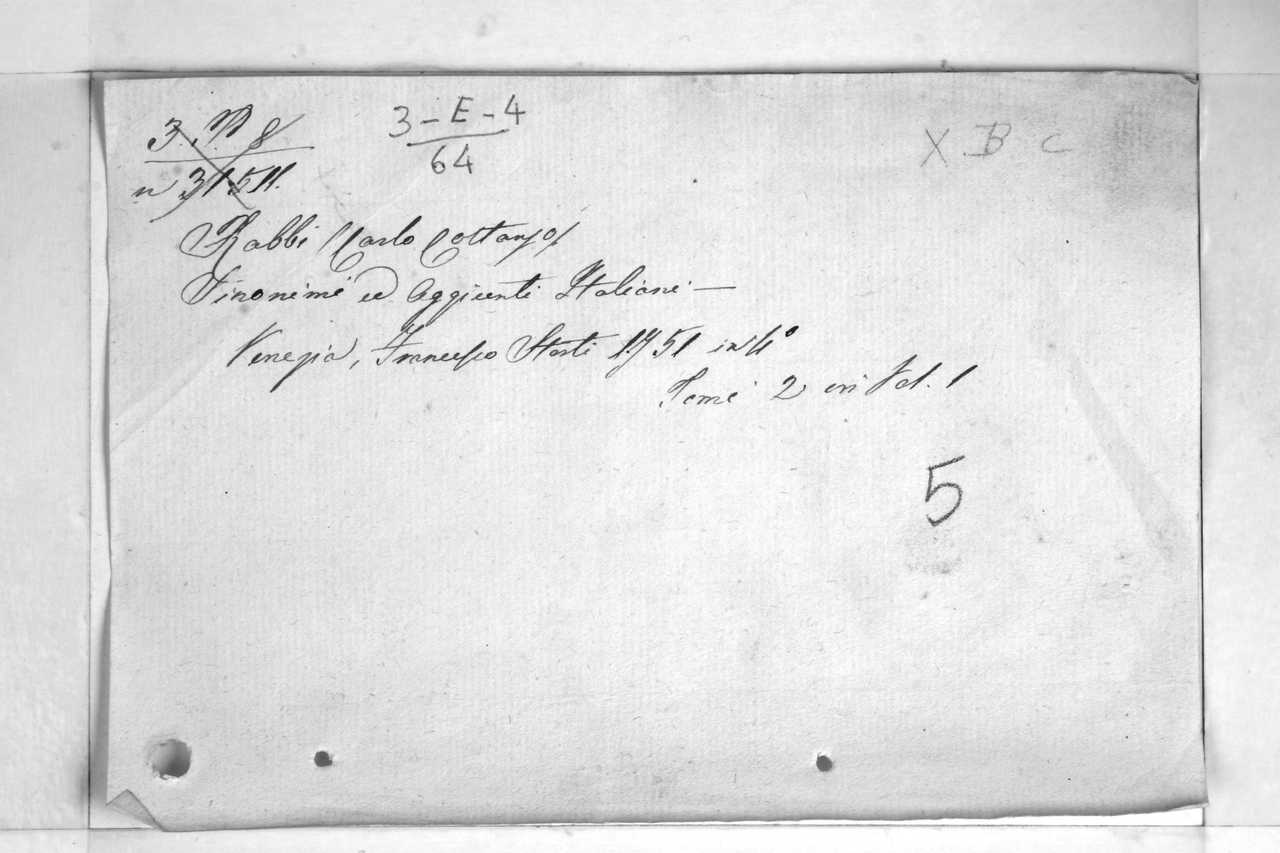 3. B 8
3-E-4
X B C
64
n 31511.
Rabbi (Carlo Costanzo)
Sinonimi ed Aggiunti Italiani —
Venezia, Francesco Storti 1751 in 4°
Tomi 2 in Vol. 1
5